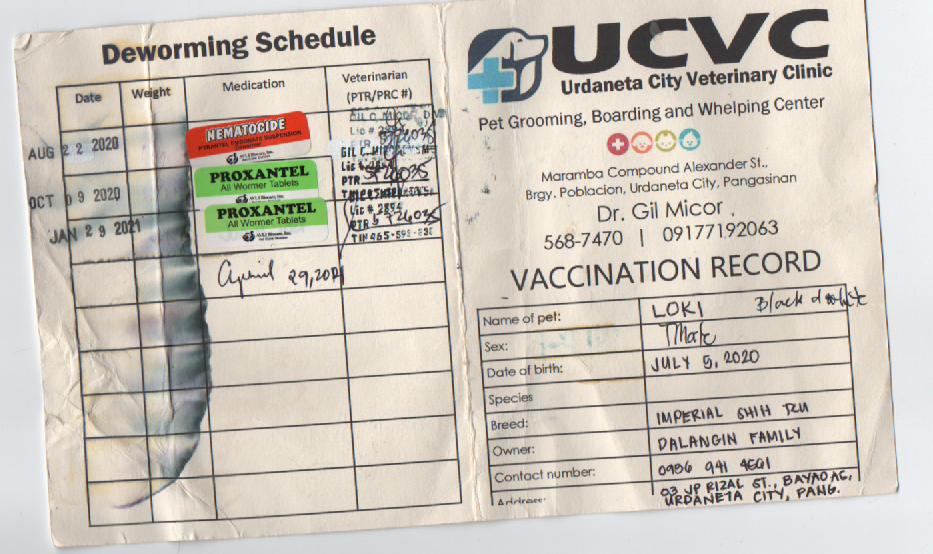 Deworming Schedule
Date Weight Medication Veterinarian
(PTR/PRC #)
AUG 22 2020 NEMATOCIDE
PYRANTEL EMBONATE SUSPENSION
OCT 09 2020 PROXANTEL
All Wormer Tablets
JAN 29 2021 PROXANTEL
All Wormer Tablets
GIL C. MICOR, DVM
Lic #
PTR
GIL C.
Lic #
PTR
Lic # 2854
PTR #
April 29, 2021
UCVC
Urdaneta City Veterinary Clinic
Pet Grooming, Boarding and Whelping Center
Maramba Compound Alexander St.,
Brgy. Poblacion, Urdaneta City, Pangasinan
Dr. Gil Micor
568-7470 | 09177192063
VACCINATION RECORD
Name of pet: LOKI Black & white
Sex: Male
Date of birth: JULY 5, 2020
Species
Breed: IMPERIAL SHIH TZU
Owner: DALANGIN FAMILY
Contact number: 0956 941 4561
Address: 03 JP RIZAL ST., BAYAOAS,
URDANETA CITY, PANG.